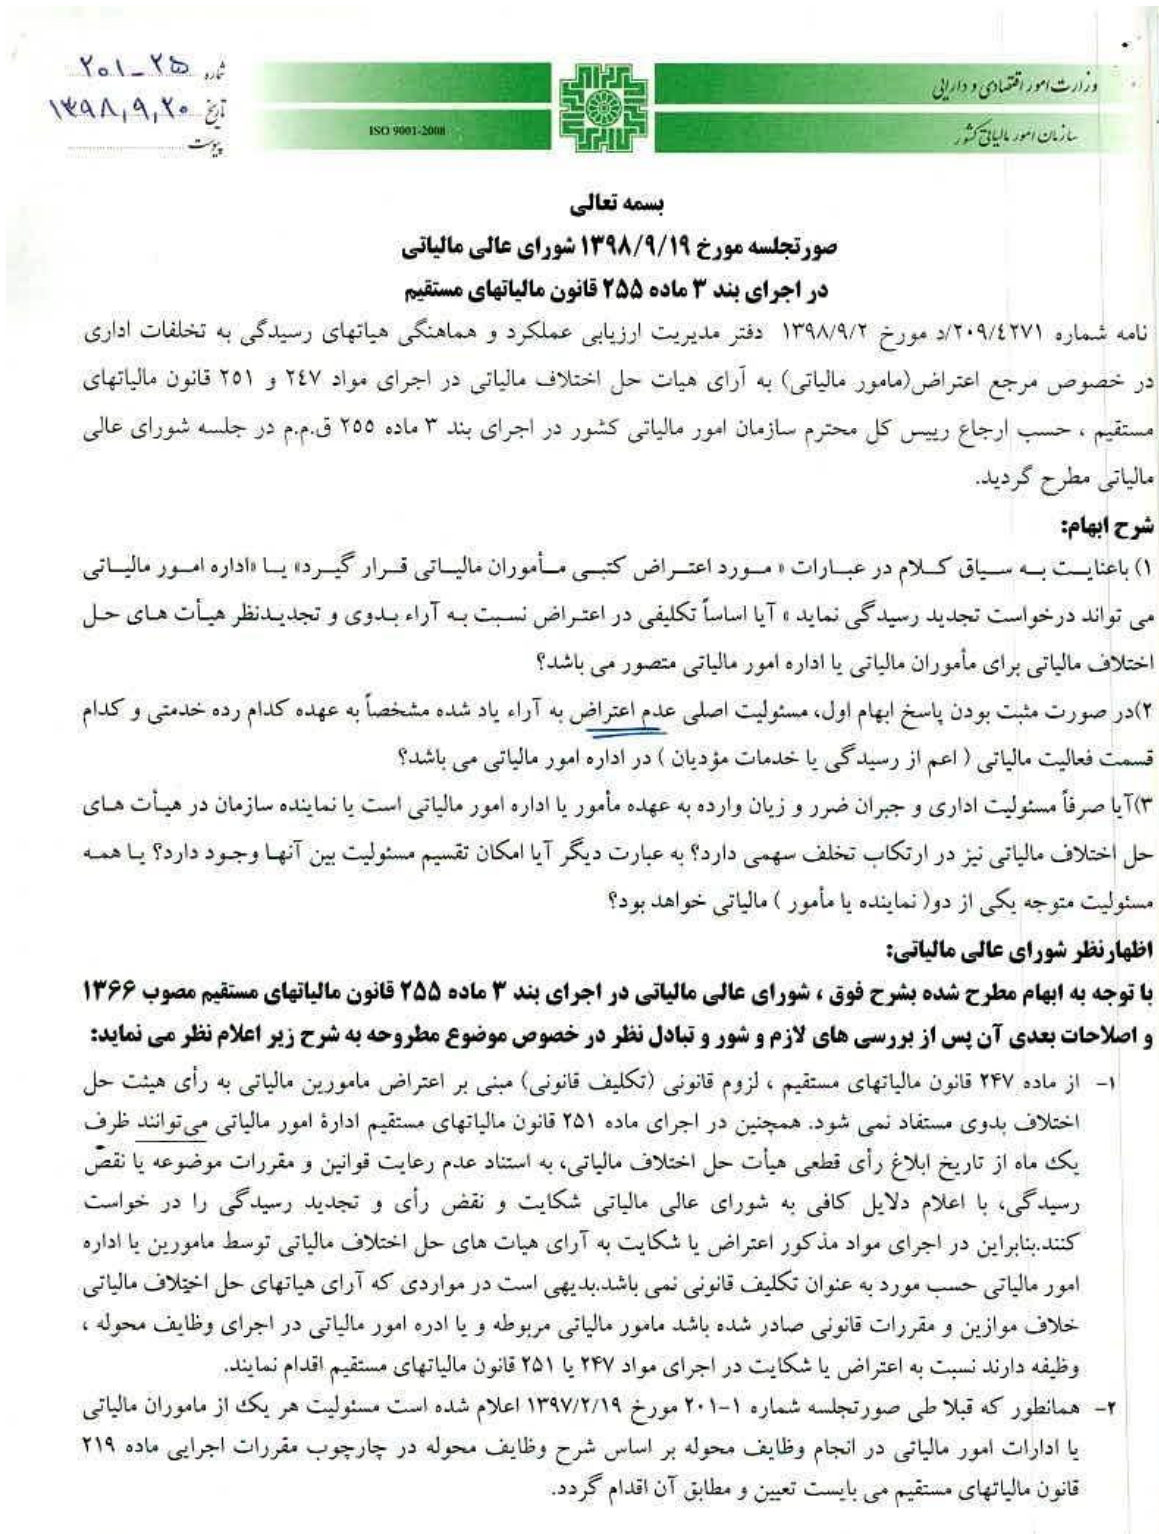 وزارت امور اقتصادی و دارایی
سازمان امور مالیاتی کشور
ISO 9001-2008
شماره ۲۰۱-۲۵
تاریخ ۱۳۹۸,۹,۲۰
پیوست
بسمه تعالی
صورتجلسه مورخ ۱۳۹۸/۹/۱۹ شورای عالی مالیاتی
در اجرای بند ۳ ماده ۲۵۵ قانون مالیاتهای مستقیم
نامه شماره ۲۰۹/٤۲۷۱/د مورخ ۱۳۹۸/۹/۲ دفتر مدیریت ارزیابی عملکرد و هماهنگی هیاتهای رسیدگی به تخلفات اداری
در خصوص مرجع اعتراض(مامور مالیاتی) به آرای هیات حل اختلاف مالیاتی در اجرای مواد ۲٤۷ و ۲۵۱ قانون مالیاتهای
مستقیم ، حسب ارجاع رییس کل محترم سازمان امور مالیاتی کشور در اجرای بند ۳ ماده ۲۵۵ ق.م.م در جلسه شورای عالی
مالیاتی مطرح گردید.
شرح ابهام:
۱) باعنایت به سیاق کلام در عبارات « مورد اعتراض کتبی مأموران مالیاتی قرار گیرد» یا «اداره امور مالیاتی
می تواند درخواست تجدید رسیدگی نماید » آیا اساساً تکلیفی در اعتراض نسبت به آراء بدوی و تجدیدنظر هیأت های حل
اختلاف مالیاتی برای مأموران مالیاتی یا اداره امور مالیاتی متصور می باشد؟
۲)در صورت مثبت بودن پاسخ ابهام اول، مسئولیت اصلی عدم اعتراض به آراء یاد شده مشخصاً به عهده کدام رده خدمتی و کدام
قسمت فعالیت مالیاتی ( اعم از رسیدگی یا خدمات مؤدیان ) در اداره امور مالیاتی می باشد؟
۳)آیا صرفاً مسئولیت اداری و جبران ضرر و زیان وارده به عهده مأمور یا اداره امور مالیاتی است یا نماینده سازمان در هیأت های
حل اختلاف مالیاتی نیز در ارتکاب تخلف سهمی دارد؟ به عبارت دیگر آیا امکان تقسیم مسئولیت بین آنها وجود دارد؟ یا همه
مسئولیت متوجه یکی از دو( نماینده یا مأمور ) مالیاتی خواهد بود؟
اظهارنظر شورای عالی مالیاتی:
با توجه به ابهام مطرح شده بشرح فوق ، شورای عالی مالیاتی در اجرای بند ۳ ماده ۲۵۵ قانون مالیاتهای مستقیم مصوب ۱۳۶۶
و اصلاحات بعدی آن پس از بررسی های لازم و شور و تبادل نظر در خصوص موضوع مطروحه به شرح زیر اعلام نظر می نماید:
۱- از ماده ۲۴۷ قانون مالیاتهای مستقیم ، لزوم قانونی (تکلیف قانونی) مبنی بر اعتراض مامورین مالیاتی به رأی هیئت حل
اختلاف بدوی مستفاد نمی شود. همچنین در اجرای ماده ۲۵۱ قانون مالیاتهای مستقیم ادارۀ امور مالیاتی می‌توانند ظرف
یک ماه از تاریخ ابلاغ رأی قطعی هیأت حل اختلاف مالیاتی، به استناد عدم رعایت قوانین و مقررات موضوعه یا نقص
رسیدگی، با اعلام دلایل کافی به شورای عالی مالیاتی شکایت و نقض رأی و تجدید رسیدگی را در خواست
کنند.بنابراین در اجرای مواد مذکور اعتراض یا شکایت به آرای هیات های حل اختلاف مالیاتی توسط مامورین یا اداره
امور مالیاتی حسب مورد به عنوان تکلیف قانونی نمی باشد.بدیهی است در مواردی که آرای هیاتهای حل اختلاف مالیاتی
خلاف موازین و مقررات قانونی صادر شده باشد مامور مالیاتی مربوطه و یا ادره امور مالیاتی در اجرای وظایف محوله ،
وظیفه دارند نسبت به اعتراض یا شکایت در اجرای مواد ۲۴۷ یا ۲۵۱ قانون مالیاتهای مستقیم اقدام نمایند.
۲- همانطور که قبلا طی صورتجلسه شماره ۱-۲۰۱ مورخ ۱۳۹۷/۲/۱۹ اعلام شده است مسئولیت هر یک از ماموران مالیاتی
یا ادارات امور مالیاتی در انجام وظایف محوله بر اساس شرح وظایف محوله در چارچوب مقررات اجرایی ماده ۲۱۹
قانون مالیاتهای مستقیم می بایست تعیین و مطابق آن اقدام گردد.